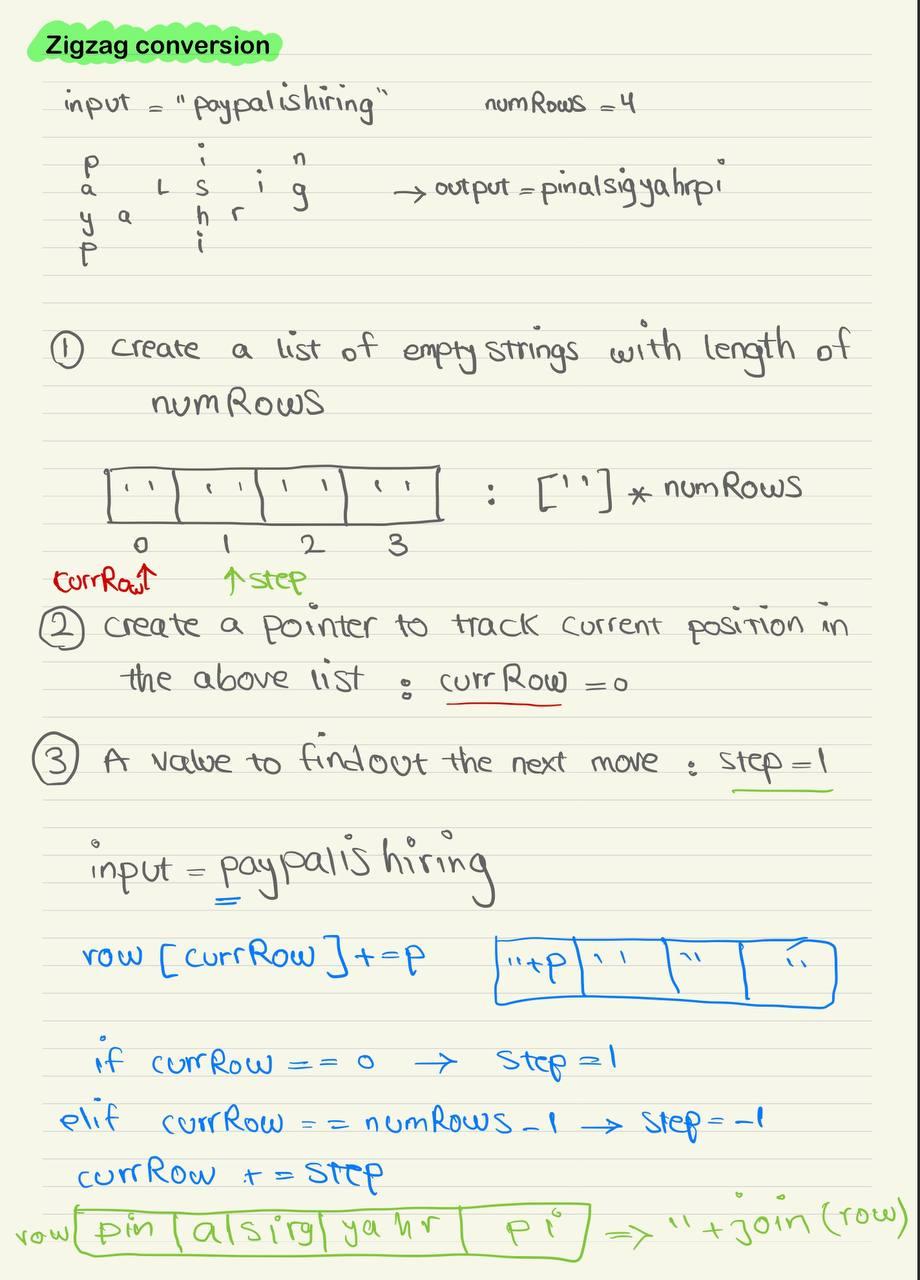 Zigzag conversion
input = "paypalishiring" numRows = 4
p i n
a L s i g → output = pinalsigyahrpi
y a h r
p i
① create a list of empty strings with length of
numRows
'' '' '' '' : [''] * numRows
0 1 2 3
currRow↑ ↑step
② create a pointer to track current position in
the above list : currRow = 0
③ A value to findout the next move : step = 1
input = paypalishiring
row [currRow] += p ''+p '' '' ''
if currRow == 0 → step = 1
elif currRow == numRows - 1 → step = -1
currRow += step
row pin alsirg yahr pi => '' + join (row)